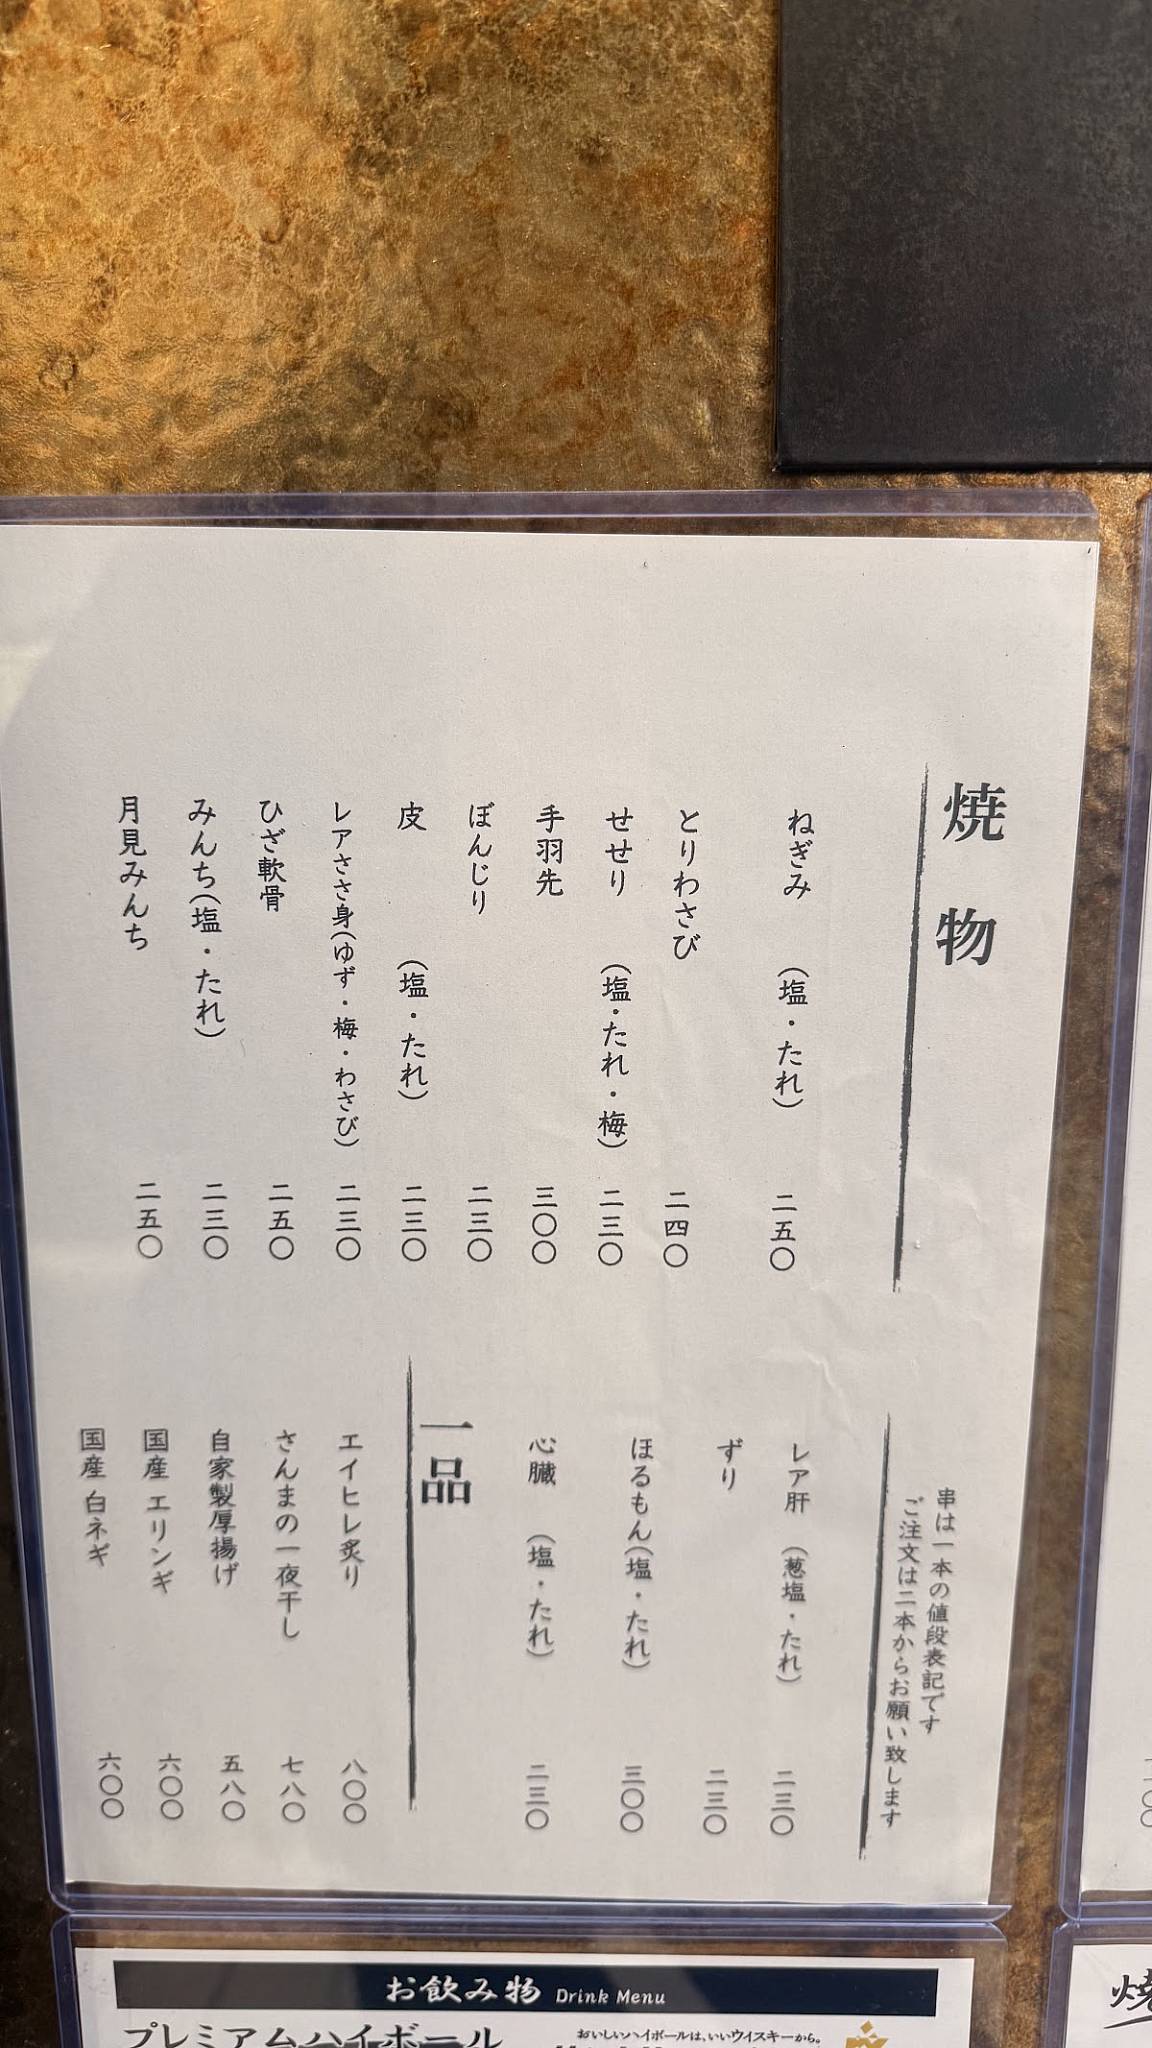 焼物
ねぎみ （塩・たれ） 二五〇
とりわさび 二四〇
せせり （塩・たれ・梅） 二三〇
手羽先 三〇〇
ぼんじり 二三〇
皮 （塩・たれ） 二三〇
レアささ身（ゆず・梅・わさび） 二三〇
ひざ軟骨 二五〇
みんち（塩・たれ） 二三〇
月見みんち 二五〇
串は一本の値段表記です
ご注文は二本からお願い致します
レア肝 （葱塩・たれ） 二三〇
ずり 二三〇
ほるもん（塩・たれ） 三〇〇
心臓 （塩・たれ） 二三〇
一品
エイヒレ炙り 八〇〇
さんまの一夜干し 七八〇
自家製厚揚げ 五八〇
国産 エリンギ 六〇〇
国産 白ネギ 六〇〇
お飲み物 Drink Menu
プレミアムハイボール
おいしいハイボールは、いいウイスキーから。